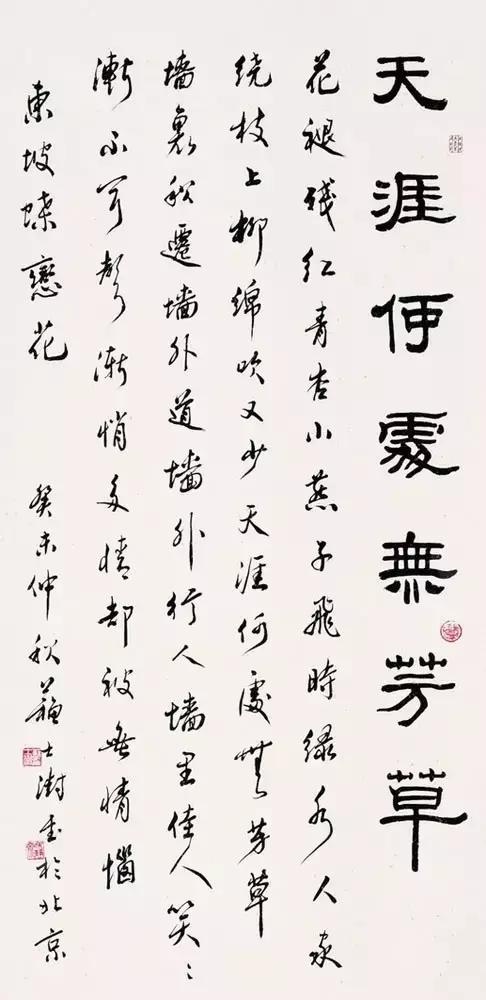 天涯何處無芳草
花褪残红青杏小燕子飛時緑水人家
绕枝上柳綿吹又少天涯何處無芳草
墙裏秋遷墙外道墙外行人墙里佳人笑〻
漸不聞聲漸悄多情却被無情惱
東坡蝶戀花 癸未仲秋蘇士澍書於北京